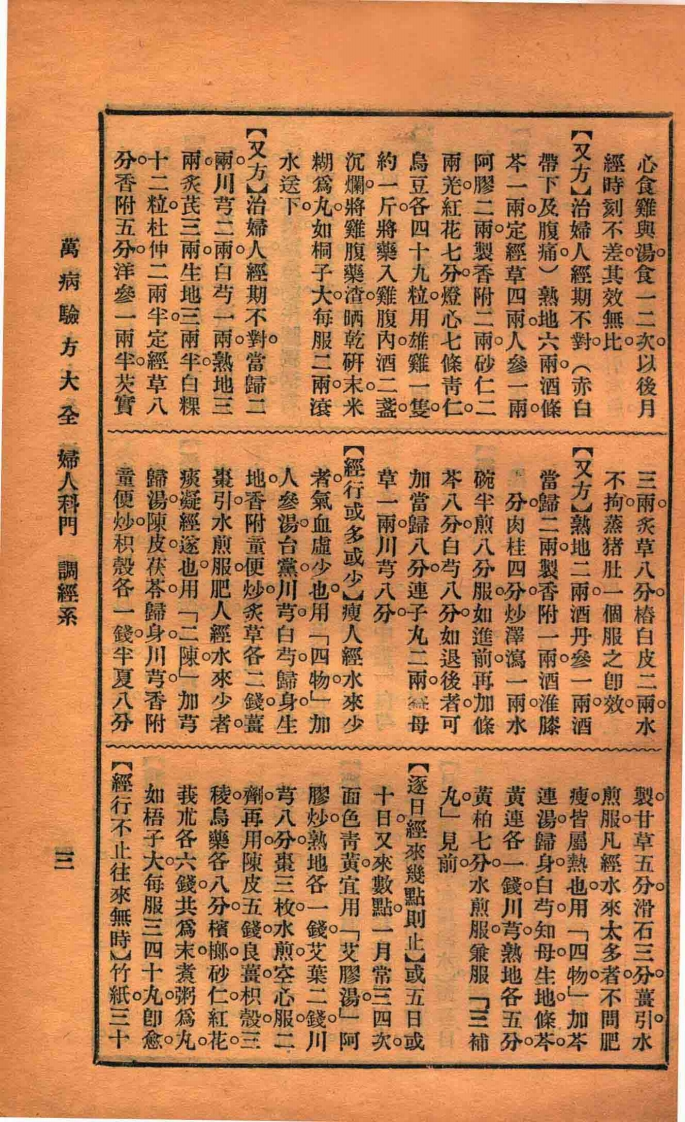 心食雞與湯食一二次。以後月
經時刻不差。其效無比。
【又方】治婦人經期不對。（赤白
帶下及腹痛）熟地六兩酒條
芩一兩。定經草四兩。人參一兩。
阿膠二兩。製香附二兩。砂仁二
兩。光紅花七分。燈心七條。青仁
烏豆各四十九粒。用雄雞一隻。
約一斤。將藥入雞腹內。酒二盞。
沉爛。將雞腹藥渣晒乾研末。米
糊爲丸。如桐子大。每服二兩。滾
水送下。
【又方】治婦人經期不對。當歸二
兩。川芎二兩。白芍一兩。熟地三
兩。炙芪三兩。生地三兩半。白粿
十二粒。杜仲二兩半。定經草八
分。香附五分。洋參一兩半。芡實
三兩。炙草八分。樁白皮二兩。水
不拘。蒸猪肚一個服之即效。
【又方】熟地二兩。酒丹參一兩。酒
當歸二兩。製香附一兩。酒淮膝
分。肉桂四分。炒澤瀉一兩。水
碗半煎八分服。如進前再加條
芩八分。白芍八分。如退後者。可
加當歸八分。連子丸二兩。益母
草一兩。川芎八分。
【經行或多或少】瘦人經水來少
者。氣血虛少也。用「四物」加
人參湯。台黨。川芎。白芍。歸身。生
地。香附。童便炒炙草各二錢。薑
棗引。水煎服。肥人經水來少者。
痰凝經遂也。用「二陳」加芎
歸湯。陳皮。茯苓。歸身。川芎。香附
童便炒。枳殼各一錢。半夏八分
製。甘草五分。滑石三分。薑引水
煎服。凡經水來太多者。不問肥
瘦。皆屬熱也。用「四物」加芩
連湯。歸身。白芍。知母。生地。條芩。
黃連各一錢。川芎。熟地各五分。
黃柏七分。水煎服。兼服「三補
丸」見前
【逐日經來幾點則止】或五日或
十日又來數點。一月常三四次。
面色靑黃。宜用「艾膠湯」阿
膠炒。熟地各一錢。艾葉二錢。川
芎八分。棗三枚。水煎空心服二
劑。再用陳皮五錢。良薑枳殼三
稜烏藥各八分。檳榔砂仁紅花
莪朮各六錢。共爲末。煮粥爲丸。
如梧子大。每服三四十丸卽愈。
【經行不止往來無時】竹紙三十
萬病驗方大全 婦人科門 調經系
三